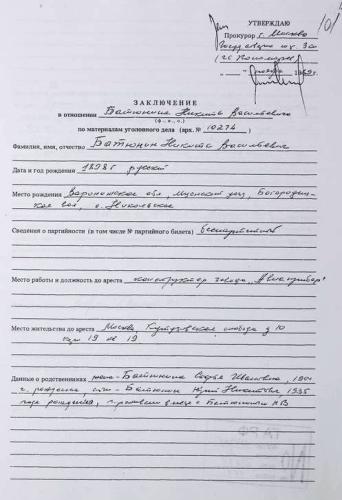 101
УТВЕРЖДАЮ
Прокурор г. Москвы
ЗАКЛЮЧЕНИЕ
в отношении Батюнина Никиты Васильевича
(ф.-и.-о.)
по материалам уголовного дела (арх. № 10274)
Фамилия, имя, отчество Батюнин Никита Васильевич
Дата и год рождения 1898 г русский
Место рождения Воронежская обл,
с. Никольское
Сведения о партийности (в том числе № партийного билета) беспартийный
Место работы и должность до ареста конструктор завода "Авиаприбор"
Место жительства до ареста Москва Кутузовская слобода д 10
кв 19
Данные о родственниках жена - Батюнина Софья Ивановна, 1904
г. рождения сын - Батюнин Юрий Никитович 1935
года рождения, Батюниным НВ